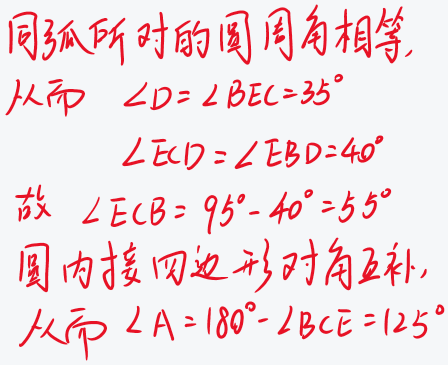 同弧所对的圆周角相等,
从而 ∠D=∠BEC=35°
∠ECD=∠EBD=40°
故 ∠ECB=95°-40°=55°
圆内接四边形对角互补,
从而∠A=180°-∠BCE=125°